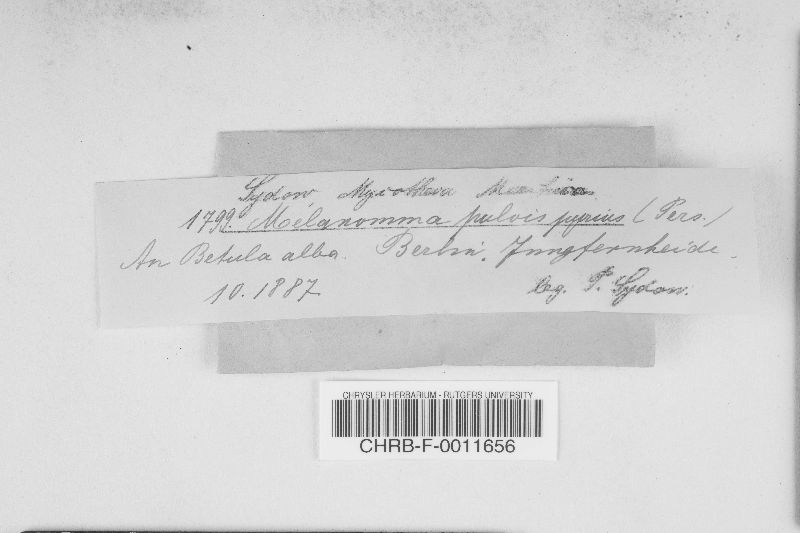 Sydow, Mycotheca Marchica.
1799. Melanomma pulvis pyrius (Pers.)
An Betula alba. Berlin, Jungfernheide.
10.1887 leg. P. Sydow.
CHRYSLER HERBARIUM - RUTGERS UNIVERSITY
CHRB-F-0011656